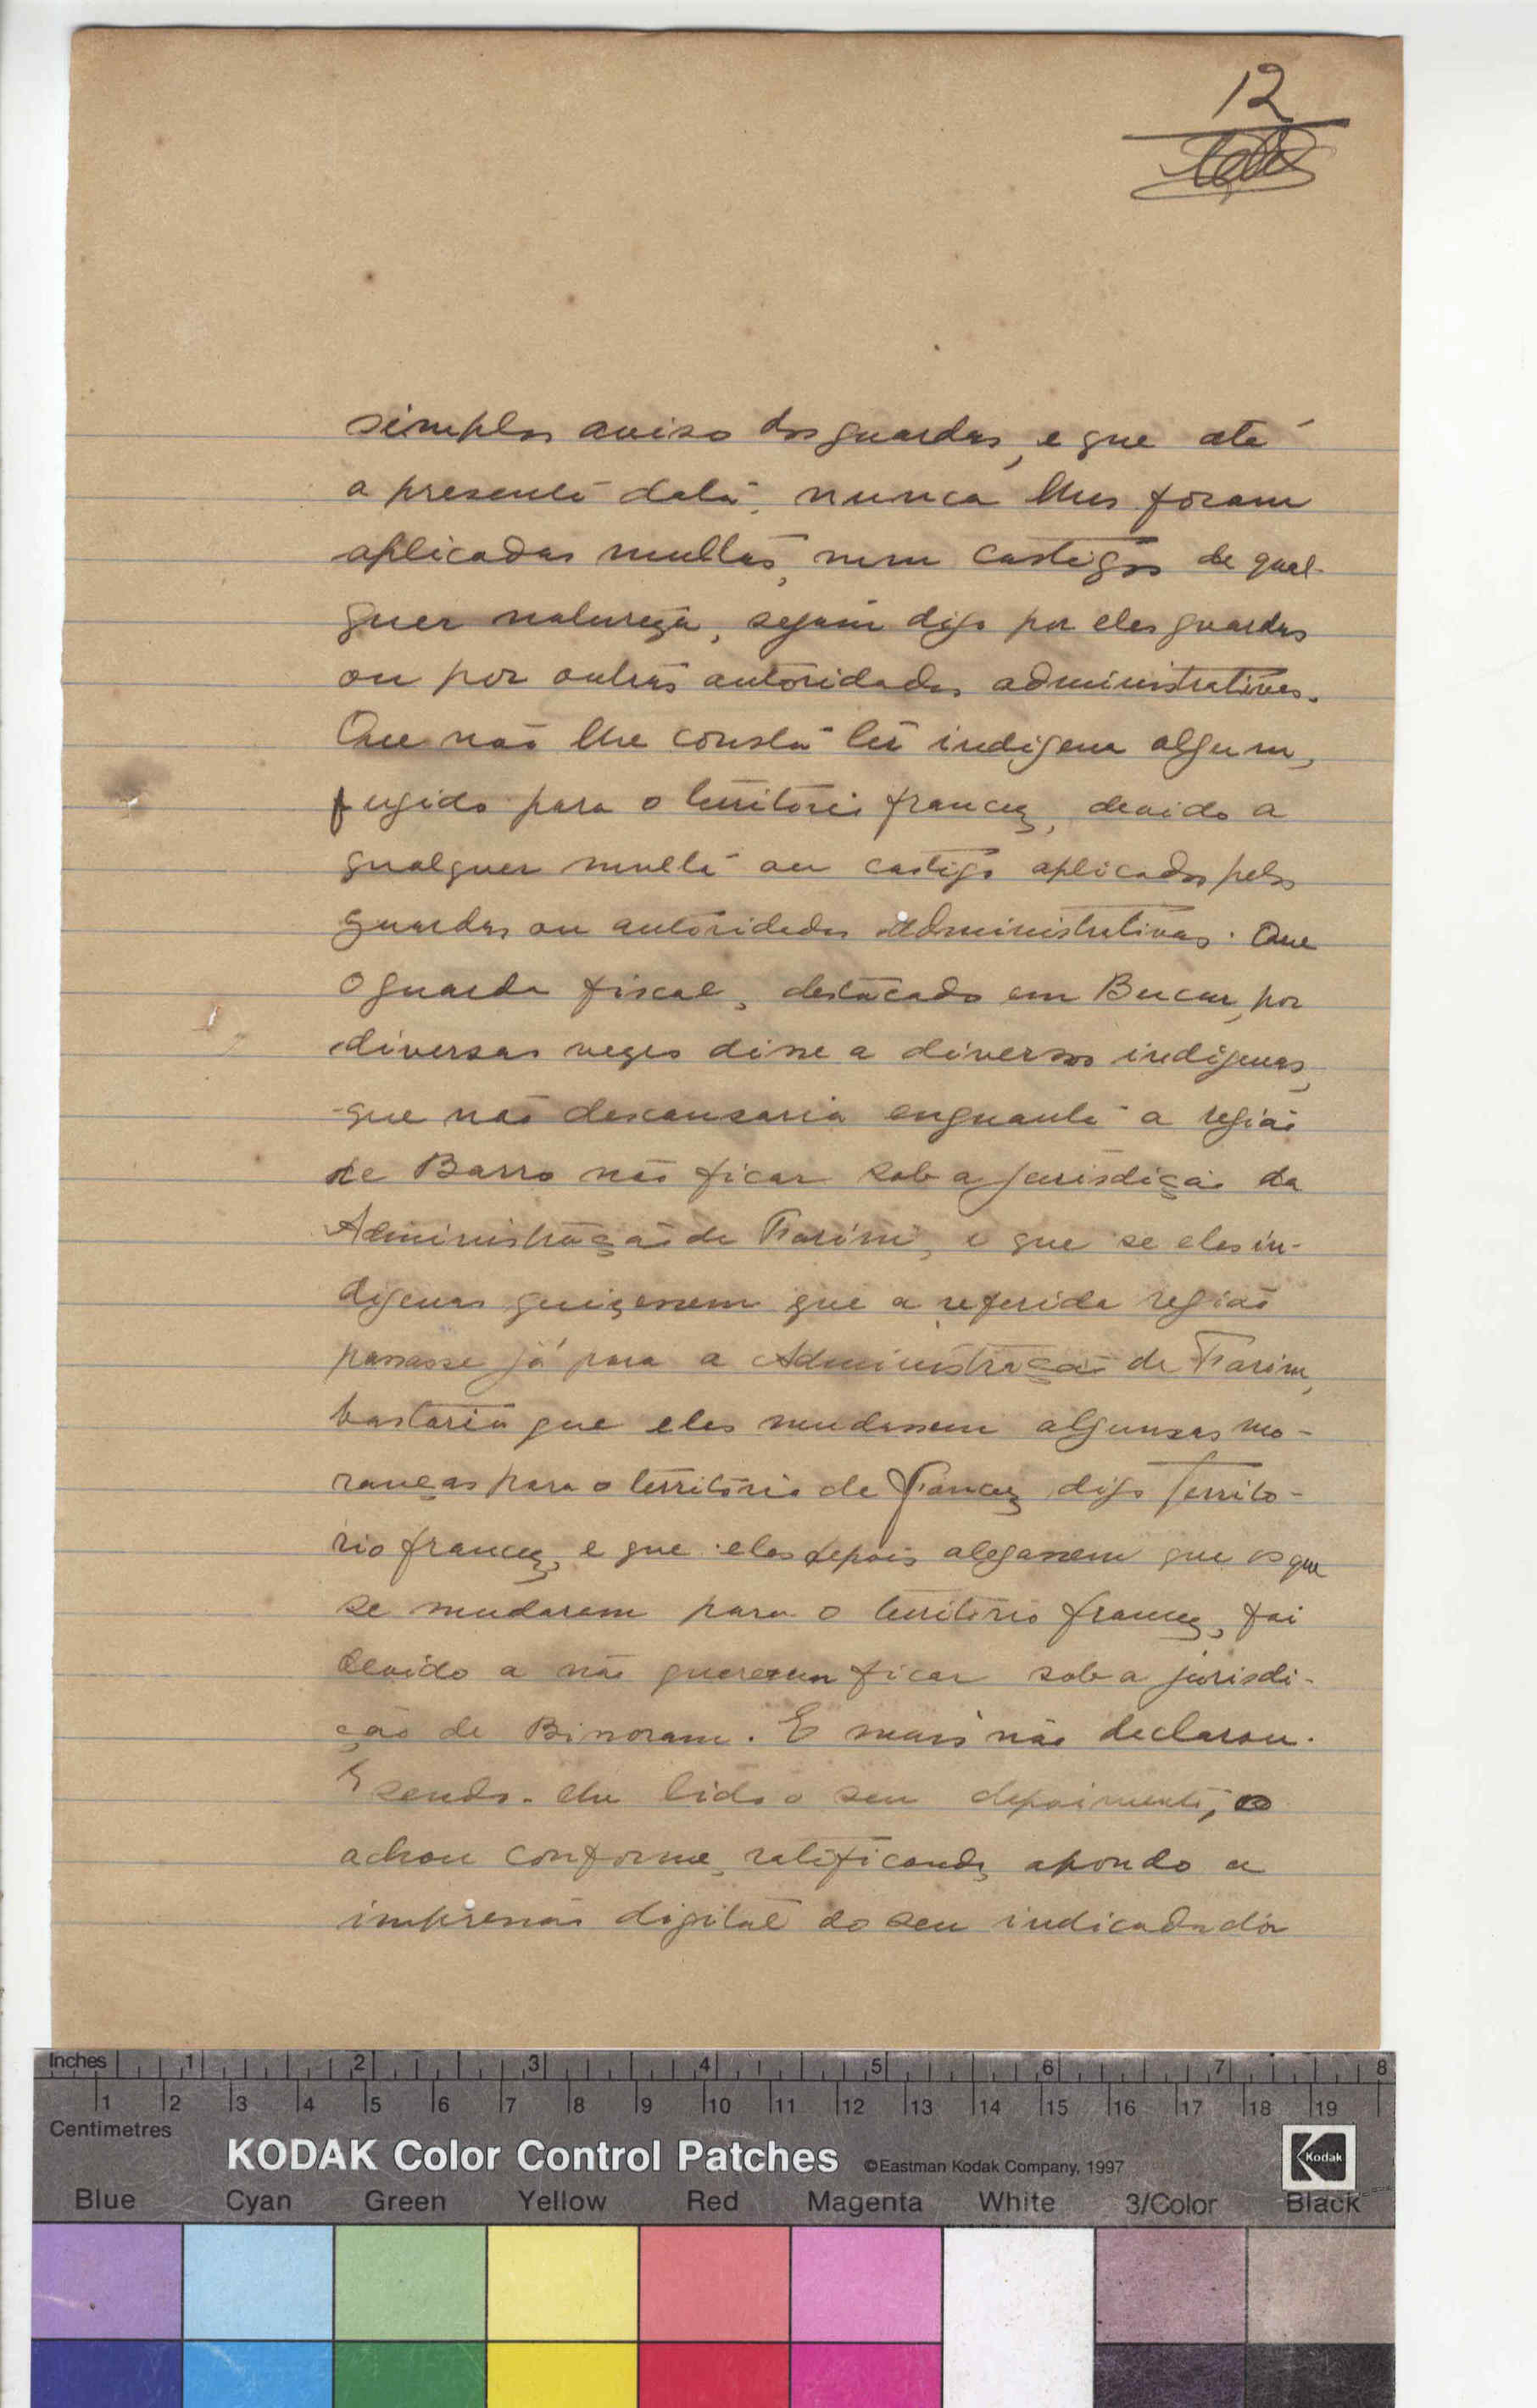 12
simples aviso dos guardas, e que até
a presente data, nunca lhes foram
aplicadas multas, nem castigos de qual-
quer natureza, sejam digo por eles guardas
ou por outras autoridades administrativas.
Que não lhe consta ter indigena algum,
fugido para o território francez, devido a
qualquer multa ou castigo aplicados pelos
guardas ou autoridades Administrativas. Que
o guarda fiscal, destacado em Bucur, por
diversas vezes disse a diversos indigenas,
que não descansaria enquanto a região
de Barro não ficar sob a jurisdição da
Administração de Farim, e que se eles in-
digenas quizessem que a referida região
passasse já para a Administração de Farim,
bastaria que eles mudassem algunsas mo-
ranças para o território de Francez digo territó-
rio francez, e que eles depois alegassem que os que
se mudaram para o território francez, foi
devido a não quererem ficar sob a jurisdi-
ção de Binoram. E mais não declarou.
E sendo-lhe lido o seu depoimento, o
achou conforme, ratificando, apondo a
impressão digital do seu indicadador
Inches 1 2 3 4 5 6 7 8
1 2 3 4 5 6 7 8 9 10 11 12 13 14 15 16 17 18 19
Centimetres
KODAK Color Control Patches ©Eastman Kodak Company, 1997 Kodak
Blue Cyan Green Yellow Red Magenta White 3/Color Black